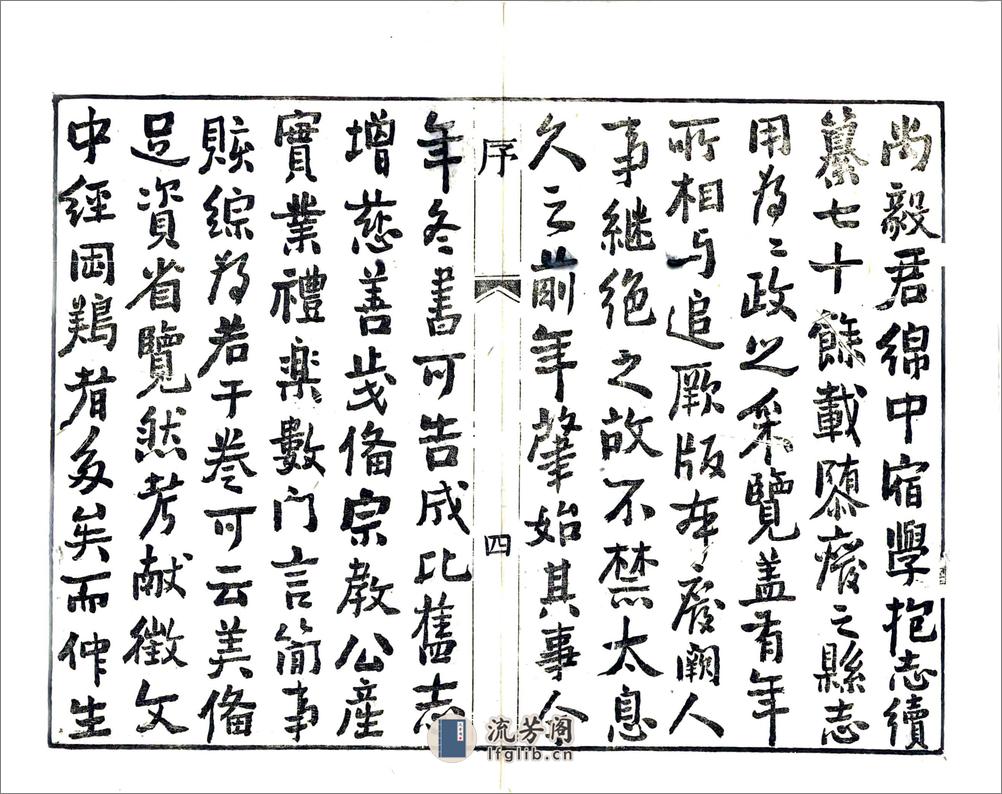 尚毅君綿中宿學抱志續
纂七十餘載隳廢之縣志
用為〻政之采覽盖有年
所相与追厥版本廢闕人
事継绝之故不禁太息
久之前年肇始其事今
序
四
年冬書可告成比舊志
增慈善戎俻宗教公產
實業禮樂數门言簡事
賅綜为若干卷可云美俻
足資省覽然考献徵文
中經困難者多矣而仲生
流芳阁
lfglib.cn